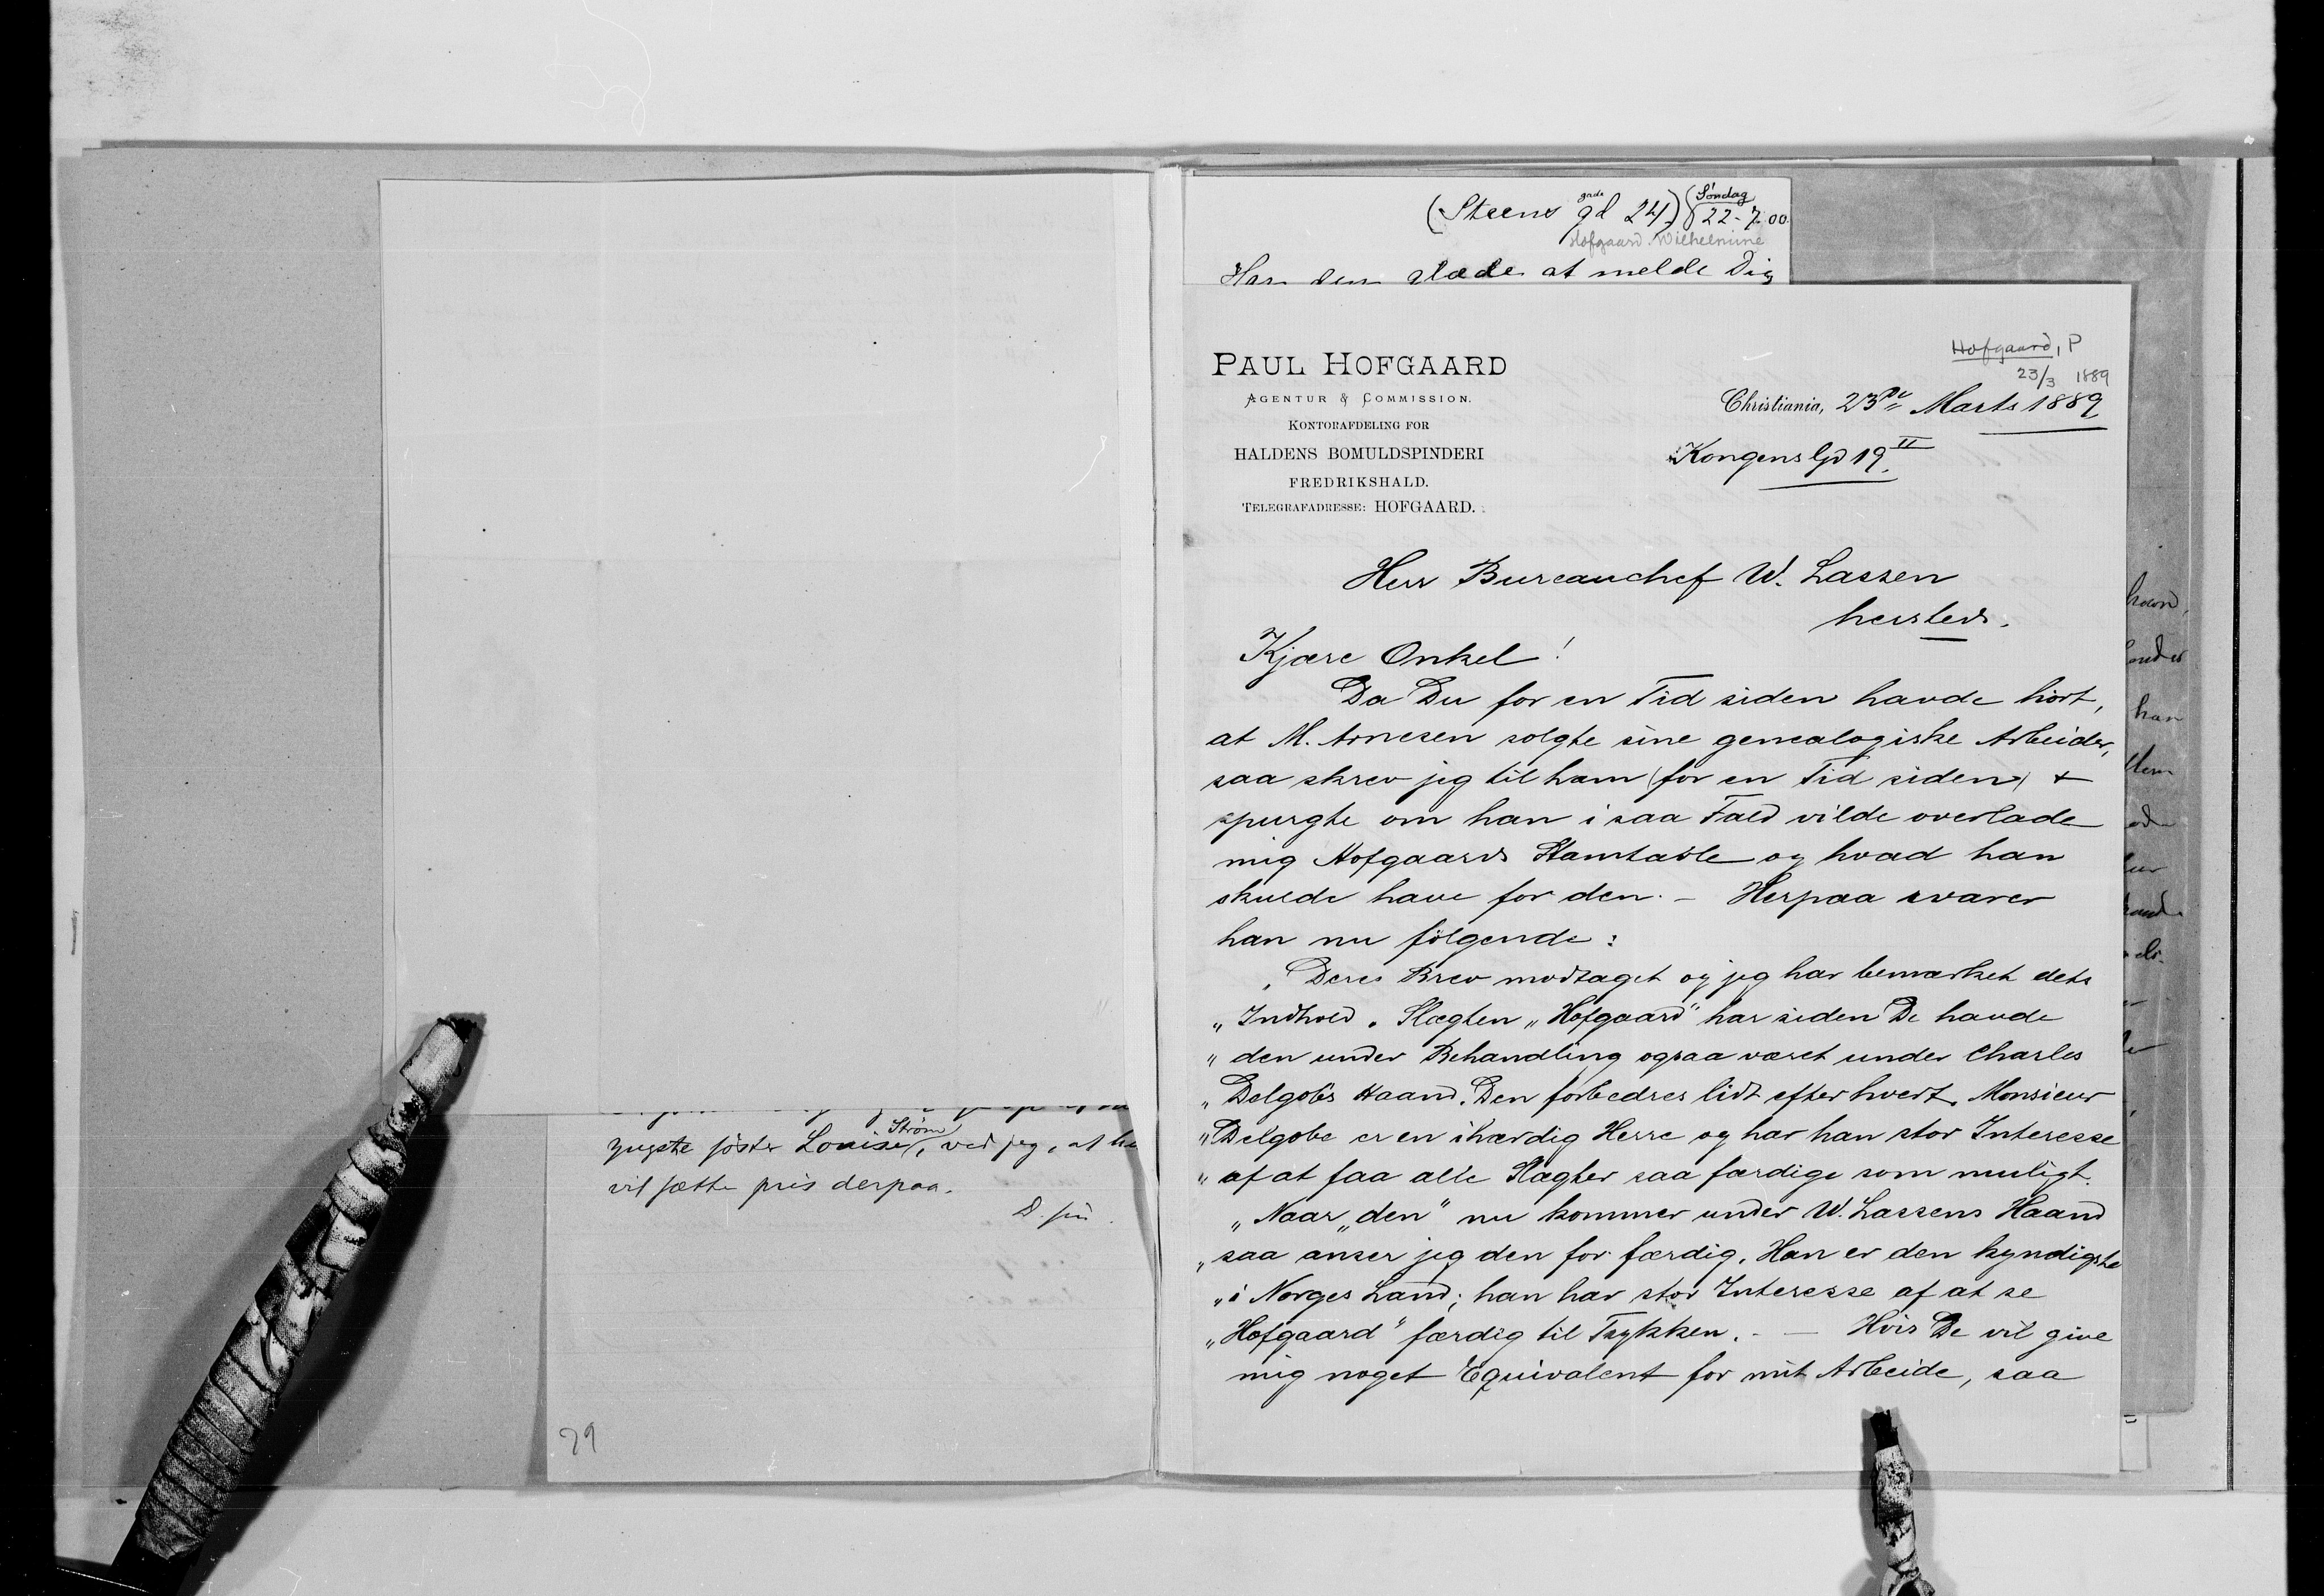 yngste søster Louise, Strøm, ved jeg, at
vil sætte pris derpaa.
D.
29
(Steens gade gd 24) (Søndag 22-7.00.
Hofgaard. Wilhelmine
Har den glæde at melde Dig
Hofgaard, P
23/3 1889
PAUL HOFGAARD
AGENTUR & COMMISSION.
KONTORAFDELING FOR
HALDENS BOMULDSPINDERI
FREDRIKSHALD.
TELEGRAFADRESSE: HOFGAARD.
Christiania, 23de Marts 1889
Kongens Gd 19 II
Herr Bureauchef W. Lassen
hersteds.
Kjære Onkel!
Da Du for en Tid siden havde hørt,
at M. Arnesen solgte sine genealogiske Arbeider,
saa skrev jeg til ham (for en Tid siden) &
spurgte om han i saa Fald vilde overlade
mig Hofgaards Stamtavle og hvad han
skulde have for den. – Herpaa svarer
han nu følgende:
„Deres Brev modtaget og jeg har bemærket dets
„Indhold. Slægten „Hofgaard" har siden De havde
„den under Behandling ogsaa været under Charles
„Delgobs Haand. Den forbedres lidt efterhvert. Monsieur
„Delgobe er en ihærdig Herre og har han stor Interesse
„af at faa alle Slægter saa færdige som muligt.
„Naar „den" nu kommer under W. Lassens Haand
„saa anser jeg den for færdig. Han er den kyndigste
„i Norges Land; han har stor Interesse af at se
„Hofgaard" færdig til Trykken. – — Hvis De vil give
mig noget Equivalent for mit Arbeide, saa